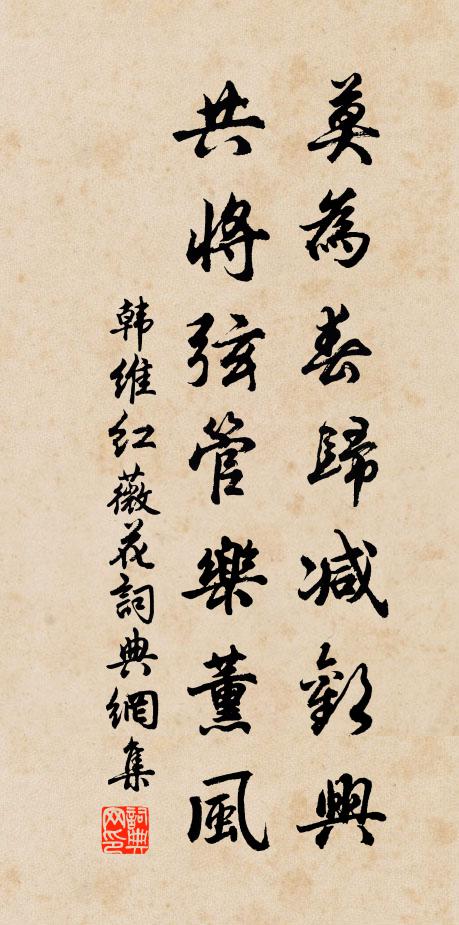 莫為春歸減歡興
共將弦管樂薰風
韩維红薇花詞典網集
詞典網印